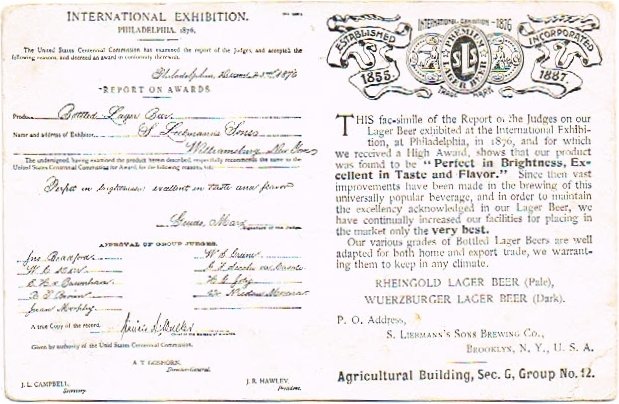 INTERNATIONAL EXHIBITION.
PHILADELPHIA, 1876.
The United States Centennial Commission has examined the report of the Judges, and accepted the
following reasons, and decreed an award in conformity therewith.
Philadelphia, 1876
REPORT ON AWARDS.
Product, Bottled Lager Beer.
Name and address of Exhibitor, S. Liebmann's Sons
Williamsburg New York
The undersigned, having examined the product herein described, respectfully recommends the same to the
United States Centennial Commission for Award, for the following reasons, viz:
Perfect in brightness; excellent in taste and flavor
Signature of the Judge.
APPROVAL OF GROUP JUDGES.
A true Copy of the record.
Given by authority of the United States Centennial Commission.
A. T. GOSHORN,
Director-General.
J. L. CAMPBELL,
Secretary.
J. R. HAWLEY,
President.
INTERNATIONAL EXHIBITION 1876
ESTABLISHED
1855.
PREMIUM
SLS
LAGER BEER
TRADE MARK
INCORPORATED
1887.
THIS fac-simile of the Report of the Judges on our
Lager Beer exhibited at the International Exhibi-
tion, at Philadelphia, in 1876, and for which
we received a High Award, shows that our product
was found to be "Perfect in Brightness, Ex-
cellent in Taste and Flavor." Since then vast
improvements have been made in the brewing of this
universally popular beverage, and in order to maintain
the excellency acknowledged in our Lager Beer, we
have continually increased our facilities for placing in
the market only the very best.
Our various grades of Bottled Lager Beers are well
adapted for both home and export trade, we warrant-
ing them to keep in any climate.
RHEINGOLD LAGER BEER (Pale),
WUERZBURGER LAGER BEER (Dark).
P. O. Address,
S. Liebmann's Sons Brewing Co.,
Brooklyn, N. Y., U. S. A.
Agricultural Building, Sec. G, Group No. 12.